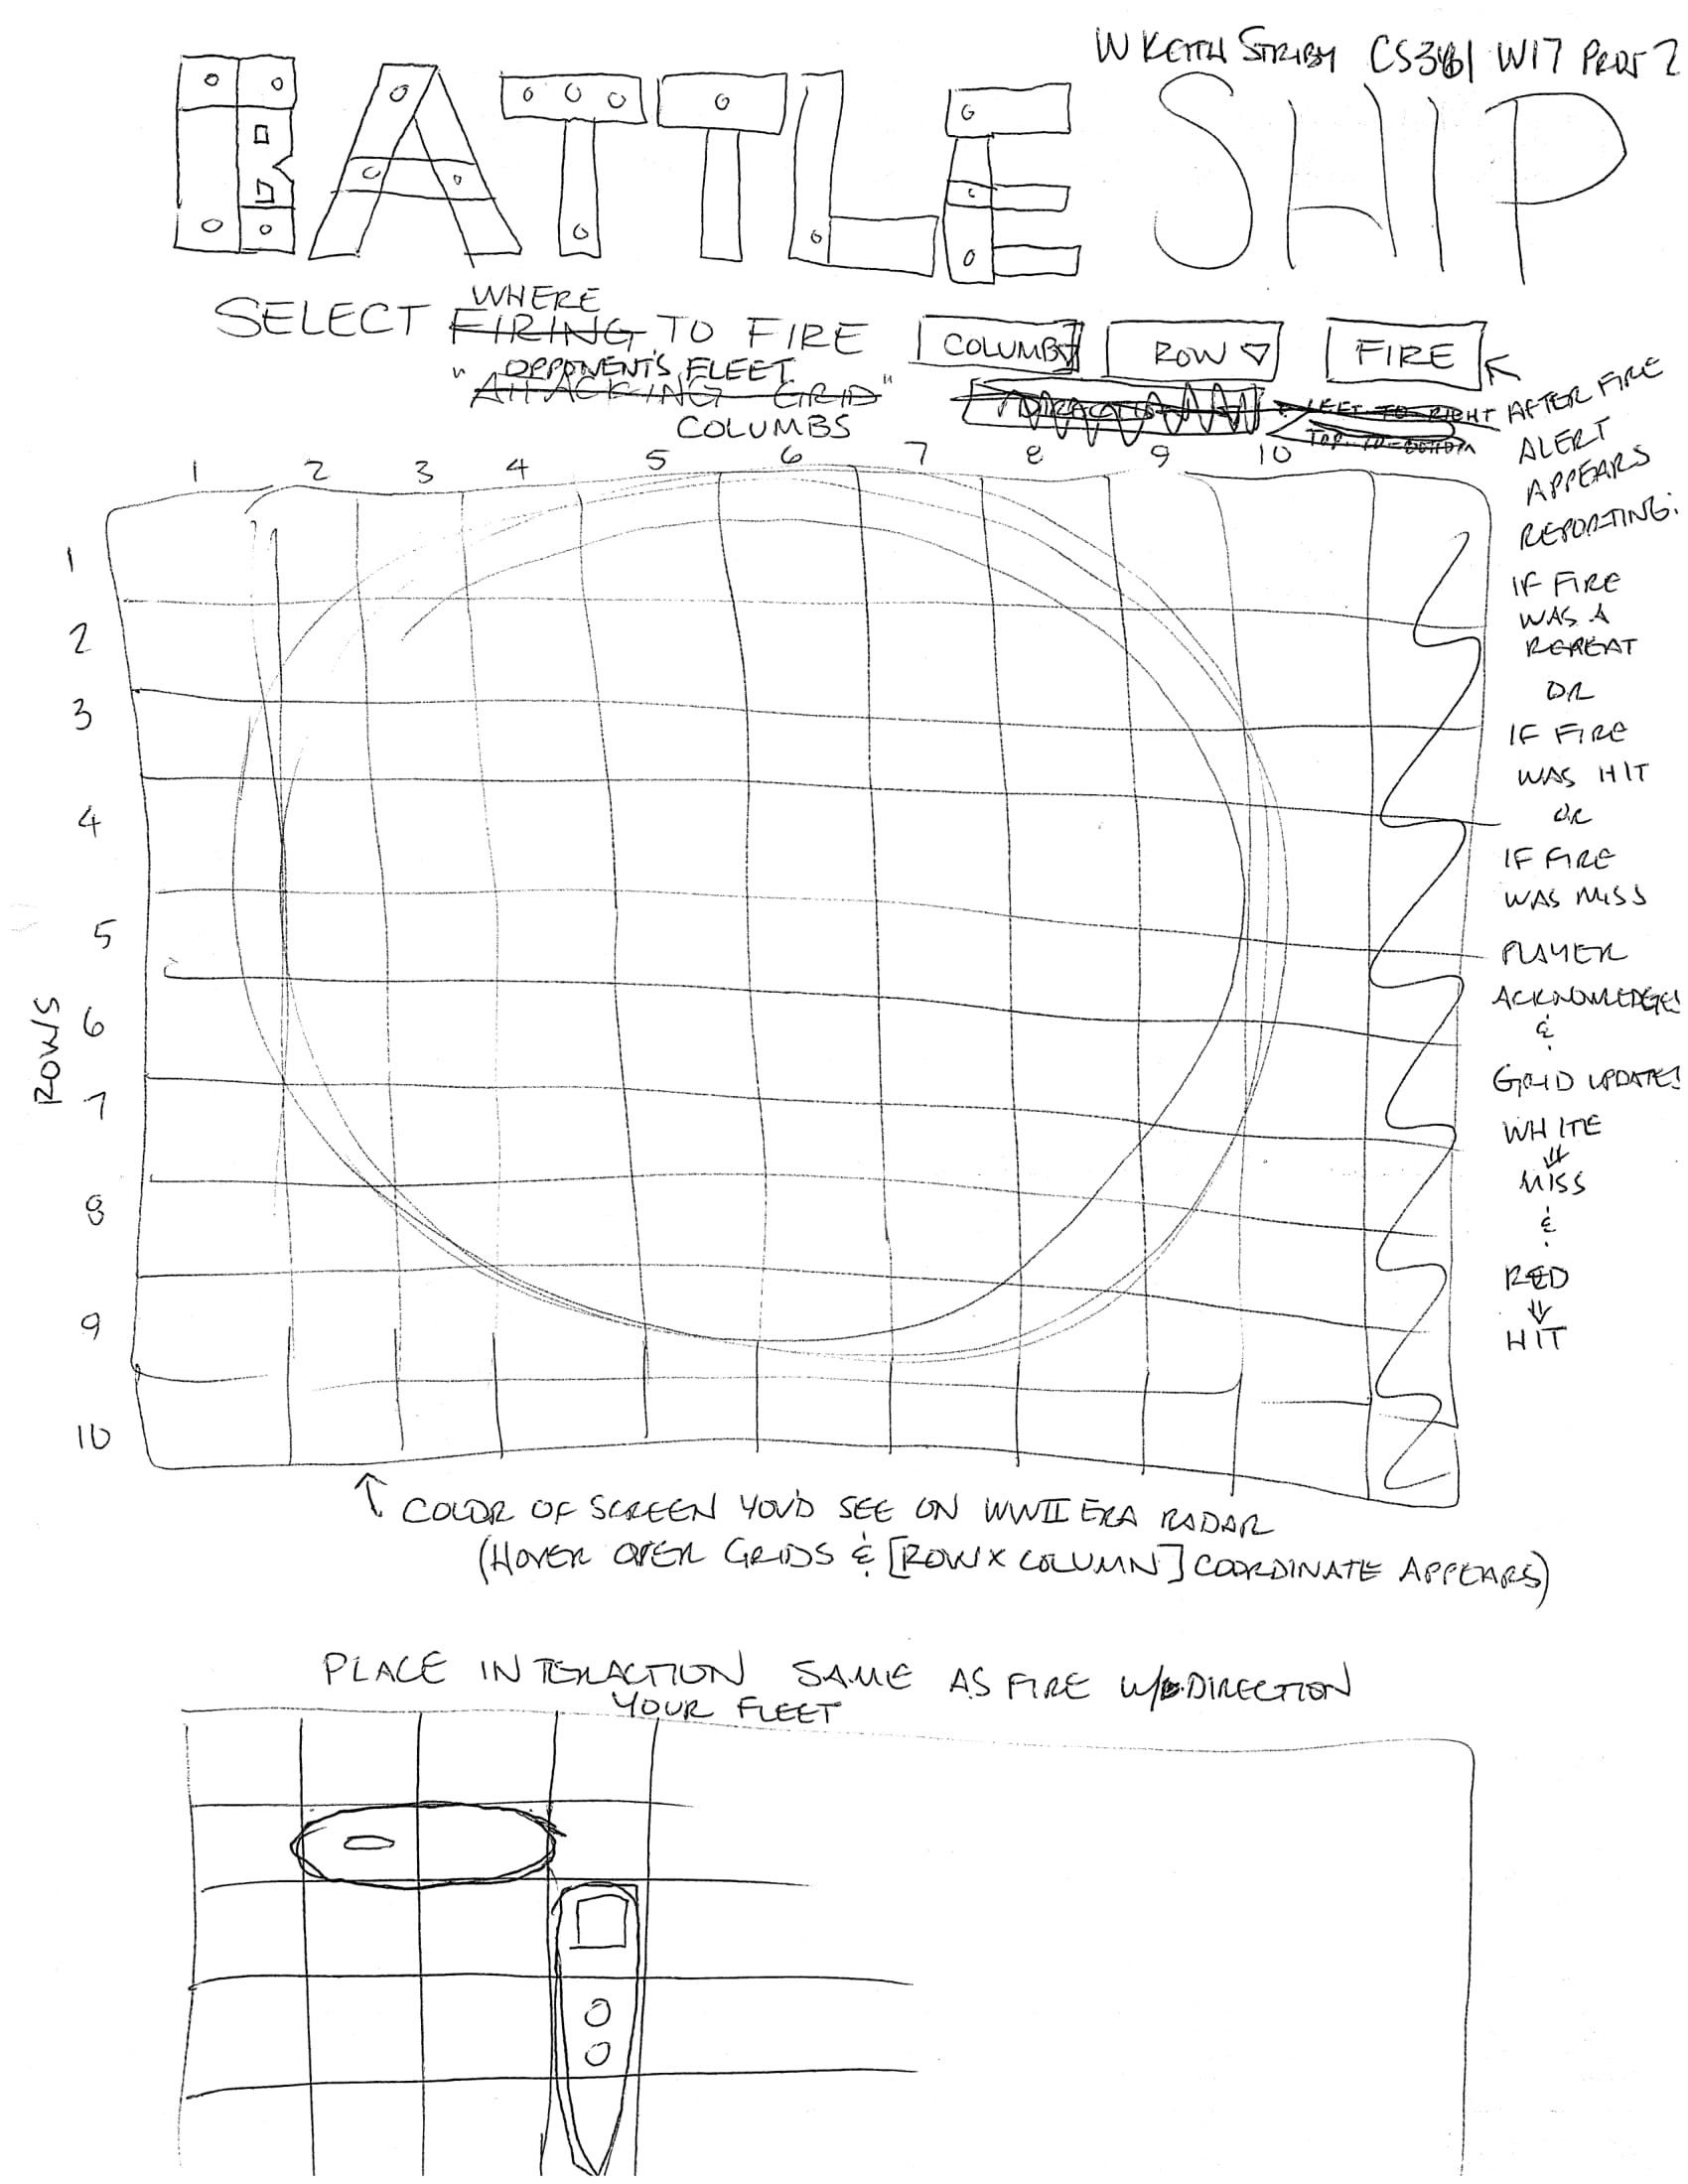 W KEITH STRIBY CS361 W17 PROJ 2
BATTLE SHIP
WHERE
SELECT FIRING TO FIRE
COLUMBS ROW FIRE
OPPONENT'S FLEET
"ATTACKING GRID"
LEFT-TO-RIGHT
TOP-TO-BOTTOM
COLUMBS
1 2 3 4 5 6 7 8 9 10
ROWS
1
2
3
4
5
6
7
8
9
10
AFTER FIRE
ALERT
APPEARS
REPORTING:
IF FIRE
WAS A
REPEAT
OR
IF FIRE
WAS HIT
OR
IF FIRE
WAS MISS
PLAYER
ACKNOWLEDGES
&
GRID UPDATES
WHITE
⇓
MISS
&
RED
⇓
HIT
↑ COLOR OF SCREEN YOU'D SEE ON WWII ERA RADAR
(HOVER OVER GRIDS & [ROW X COLUMN] COORDINATE APPEARS)
PLACE INTERACTION SAME AS FIRE W/ DIRECTION
YOUR FLEET